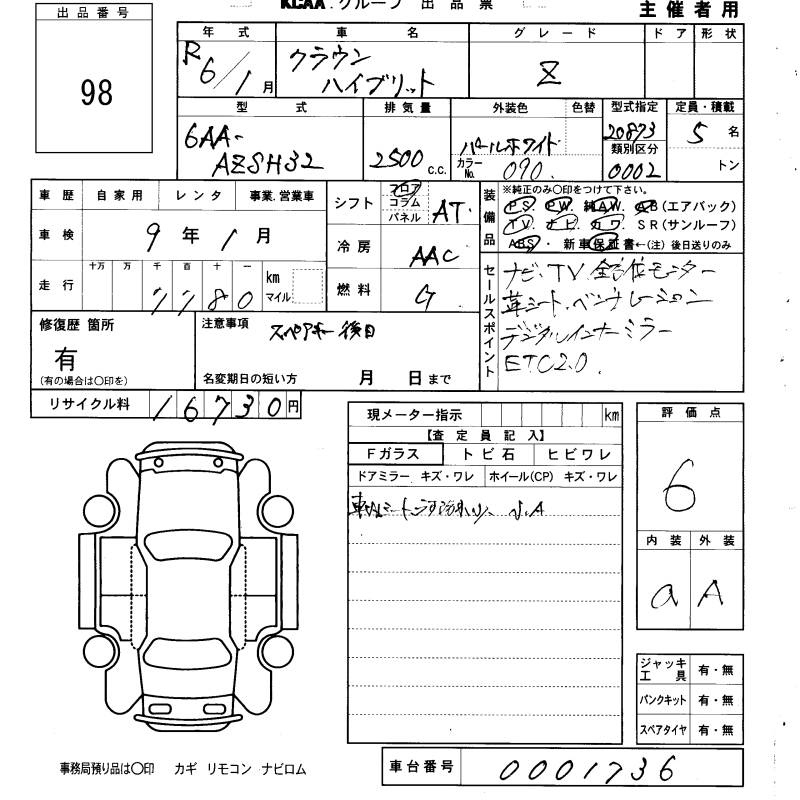 KCAA.グループ 出品票
主催者用
出品番号
98
年式 車名 グレード ドア 形状
R6/1月 クラウン ハイブリット Z
型式 排気量 外装色 色替 型式指定 定員・積載
6AA-AZSH32 2500 c.c. パールホワイト 20873 5名
カラーNo. 090 類別区分 0002 トン
車歴 自家用 レンタ 事業.営業車
車検 9年1月
走行 十万 万 千 百 十 一 km マイル
7780
シフト フロア コラム パネル AT
冷房 AAC
燃料 G
装備品
※純正のみ〇印をつけて下さい。
PS. PW. 純AW. AB(エアバック)
TV. ナビ. カワ. SR(サンルーフ)
ABS・ 新車保証書←(注) 後日送りのみ
セールスポイント
ナビ、TV 全方位モニター
革シート、ベンチレーション
デジタルインナーミラー
ETC2.0.
修復歴 箇所
有
(有の場合は〇印を)
注意事項 スペアキー後日
名変期日の短い方 月 日まで
リサイクル料 16730円
現メーター指示 km
【査定員記入】
Fガラス トビ石 ヒビワレ
ドアミラー キズ・ワレ ホイール(CP) キズ・ワレ
評価点
6
内装 外装
a A
ジャッキ工具 有・無
パンクキット 有・無
スペアタイヤ 有・無
事務局預り品は〇印 カギ リモコン ナビロム
車台番号 0001736